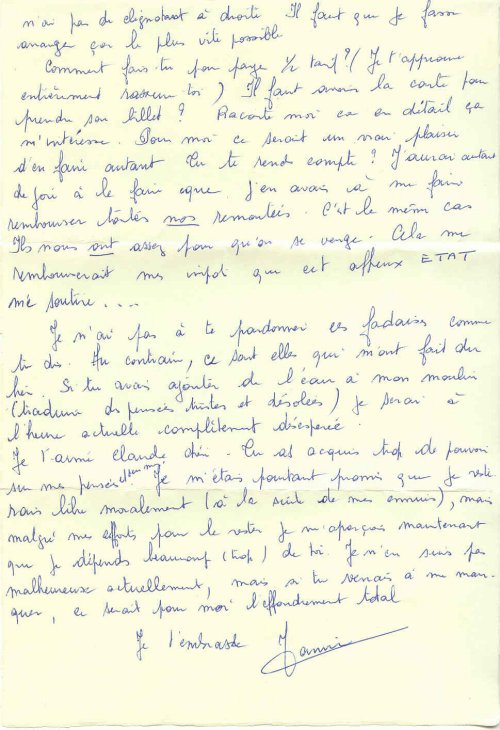 n'ai pas de clignotant à droite. Il faut que je fasse
arranger ça le plus vite possible
Comment fais-tu pour payer 1/2 tarif ? (Je t'approuve
entièrement rassure toi) Il faut avoir la carte pour
prendre son billet ? Raconte moi ça en détail ça
m'intéresse. Pour moi ce serait un vrai plaisir
d'en faire autant Tu te rend compte ? J'aurai autant
de joie à le faire que j'en avais à me faire
rembourser toutes nos remontées. C'est le même cas
Ils nous ont assez pour qu'on se venge. Cela me
rembourserait mes impot que cet affreux ETAT
me soutire....
Je n'ai pas à te pardonner ces fadaises comme
tu dis. Au contraire, ce sont elles qui m'ont fait du
bien. Si tu avais ajouter de l'eau à mon moulin
(traduire des pensées tristes et désolées) je serai à
l'heure actuelle complètement désespérée.
Je t'aime Claude chéri. Tu as acquis trop de pouvoir
sur mes pensées et sur moi Je m'étais pourtant promis que je reste
rais libre moralement (à la suite de mes ennuis), mais
malgré mes efforts pour le rester je m'aperçois maintenant
que je dépends beaucoup (trop) de toi. Je n'en suis pas
malheureuse actuellement, mais si tu venais à me man-
quer, ce serait pour moi l'effondrement total
Je t'embrasse